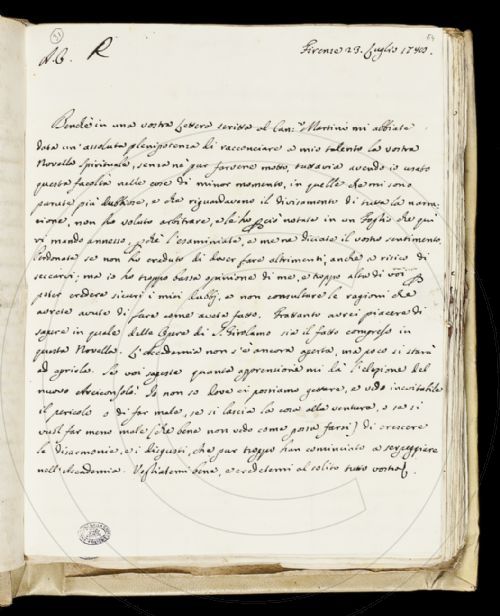 51
54
A. B. R
Firenze 23. Luglio 1740.
Benchè in una vostra Lettera scritta al Can.co Martini mi abbiate
data un'assoluta plenipotenza di racconciare a mio talento la vostra
Novella Spirituale, senza nè pur farvene motto, tuttavia avendo io usato
questa facoltà nelle cose di minor momento, in quelle che mi sono
parute più dubbiose, e che riguardavano il divisamento di tutta la narra-
zione, non ho voluto arbitrare, e le ho perciò notate in un Foglio che qui
vi mando annesso, perchè l'esaminiate, e me ne diciate il vostro sentimento.
Perdonate se non ho creduto di dover fare altrimenti, anche a risico di
seccarvi; ma io ho troppo bassa opinione di me, e troppo alta di voi per
poter credere sicuri i miei dubbj, e non consultare le ragioni che
avrete avute di fare come avete fatto. Frattanto avrei piacere di
sapere in quale delle Opere di S. Girolamo sia il fatto compreso in
questa Novella. L'Accademia non s'è ancora aperta, ma poco si starà
ad aprirla. Se voi sapeste quanta apprensione mi dà l'elezione del
nuovo Arciconsolo! Io non so dove ci possiamo gettare, e vedo inevitabile
il pericolo o di far male, se si lascia la cosa alla ventura, o se si
vuol far meno male (che bene non vedo come possa farsi) di crescere
le disarmonie, e i disgusti, che pur troppo han cominciato a serpeggiare
nell'Accademia. Vogliatemi bene, e credetemi al solito tutto vostro.